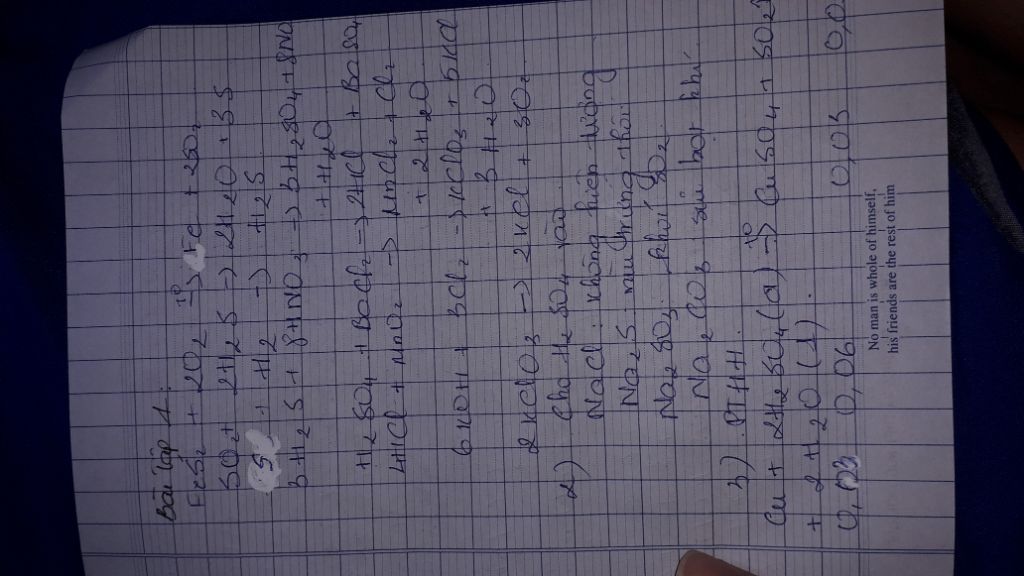 Bài tập 1:
FeS₂ + 2O₂ -t°-> Fe + 2SO₂
SO₂ + 2H₂S -> 2H₂O + 3S
S + H₂ -> H₂S
3H₂S + 8HNO₃ -> 3H₂SO₄ + 8NO
+ H₂O
H₂SO₄ + BaCl₂ -> 2HCl + BaSO₄
4HCl + MnO₂ -> MnCl₂ + Cl₂
+ 2H₂O
6KOH + 3Cl₂ -> KClO₃ + 5KCl
+ 3H₂O
2KClO₃ -> 2KCl + 3O₂
2) Cho H₂SO₄ vào
NaCl: không hiện tượng
Na₂S: mùi trứng thối
Na₂SO₃: khói SO₂
Na₂CO₃ sủi bọt khí.
3) PTHH:
Cu + 2H₂SO₄(đ) -t°-> CuSO₄ + SO₂↑
+ 2H₂O (1).
0,03 0,06 0,03 0,0
No man is whole of himself,
his friends are the rest of him